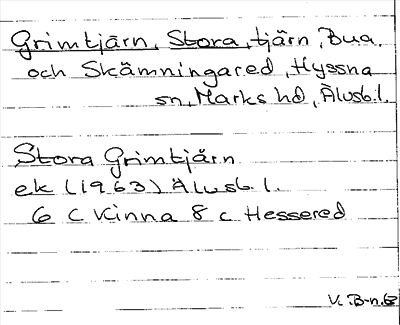 Grimtjärn, Stora, tjärn, Bua,
och Skämningared, Hyssna
sn, Marks hd, Älvsb.l.
Stora Grimtjärn
ek (1963) Älvsb. l.
6 c Kinna 8 c Hessered
V. B-n.